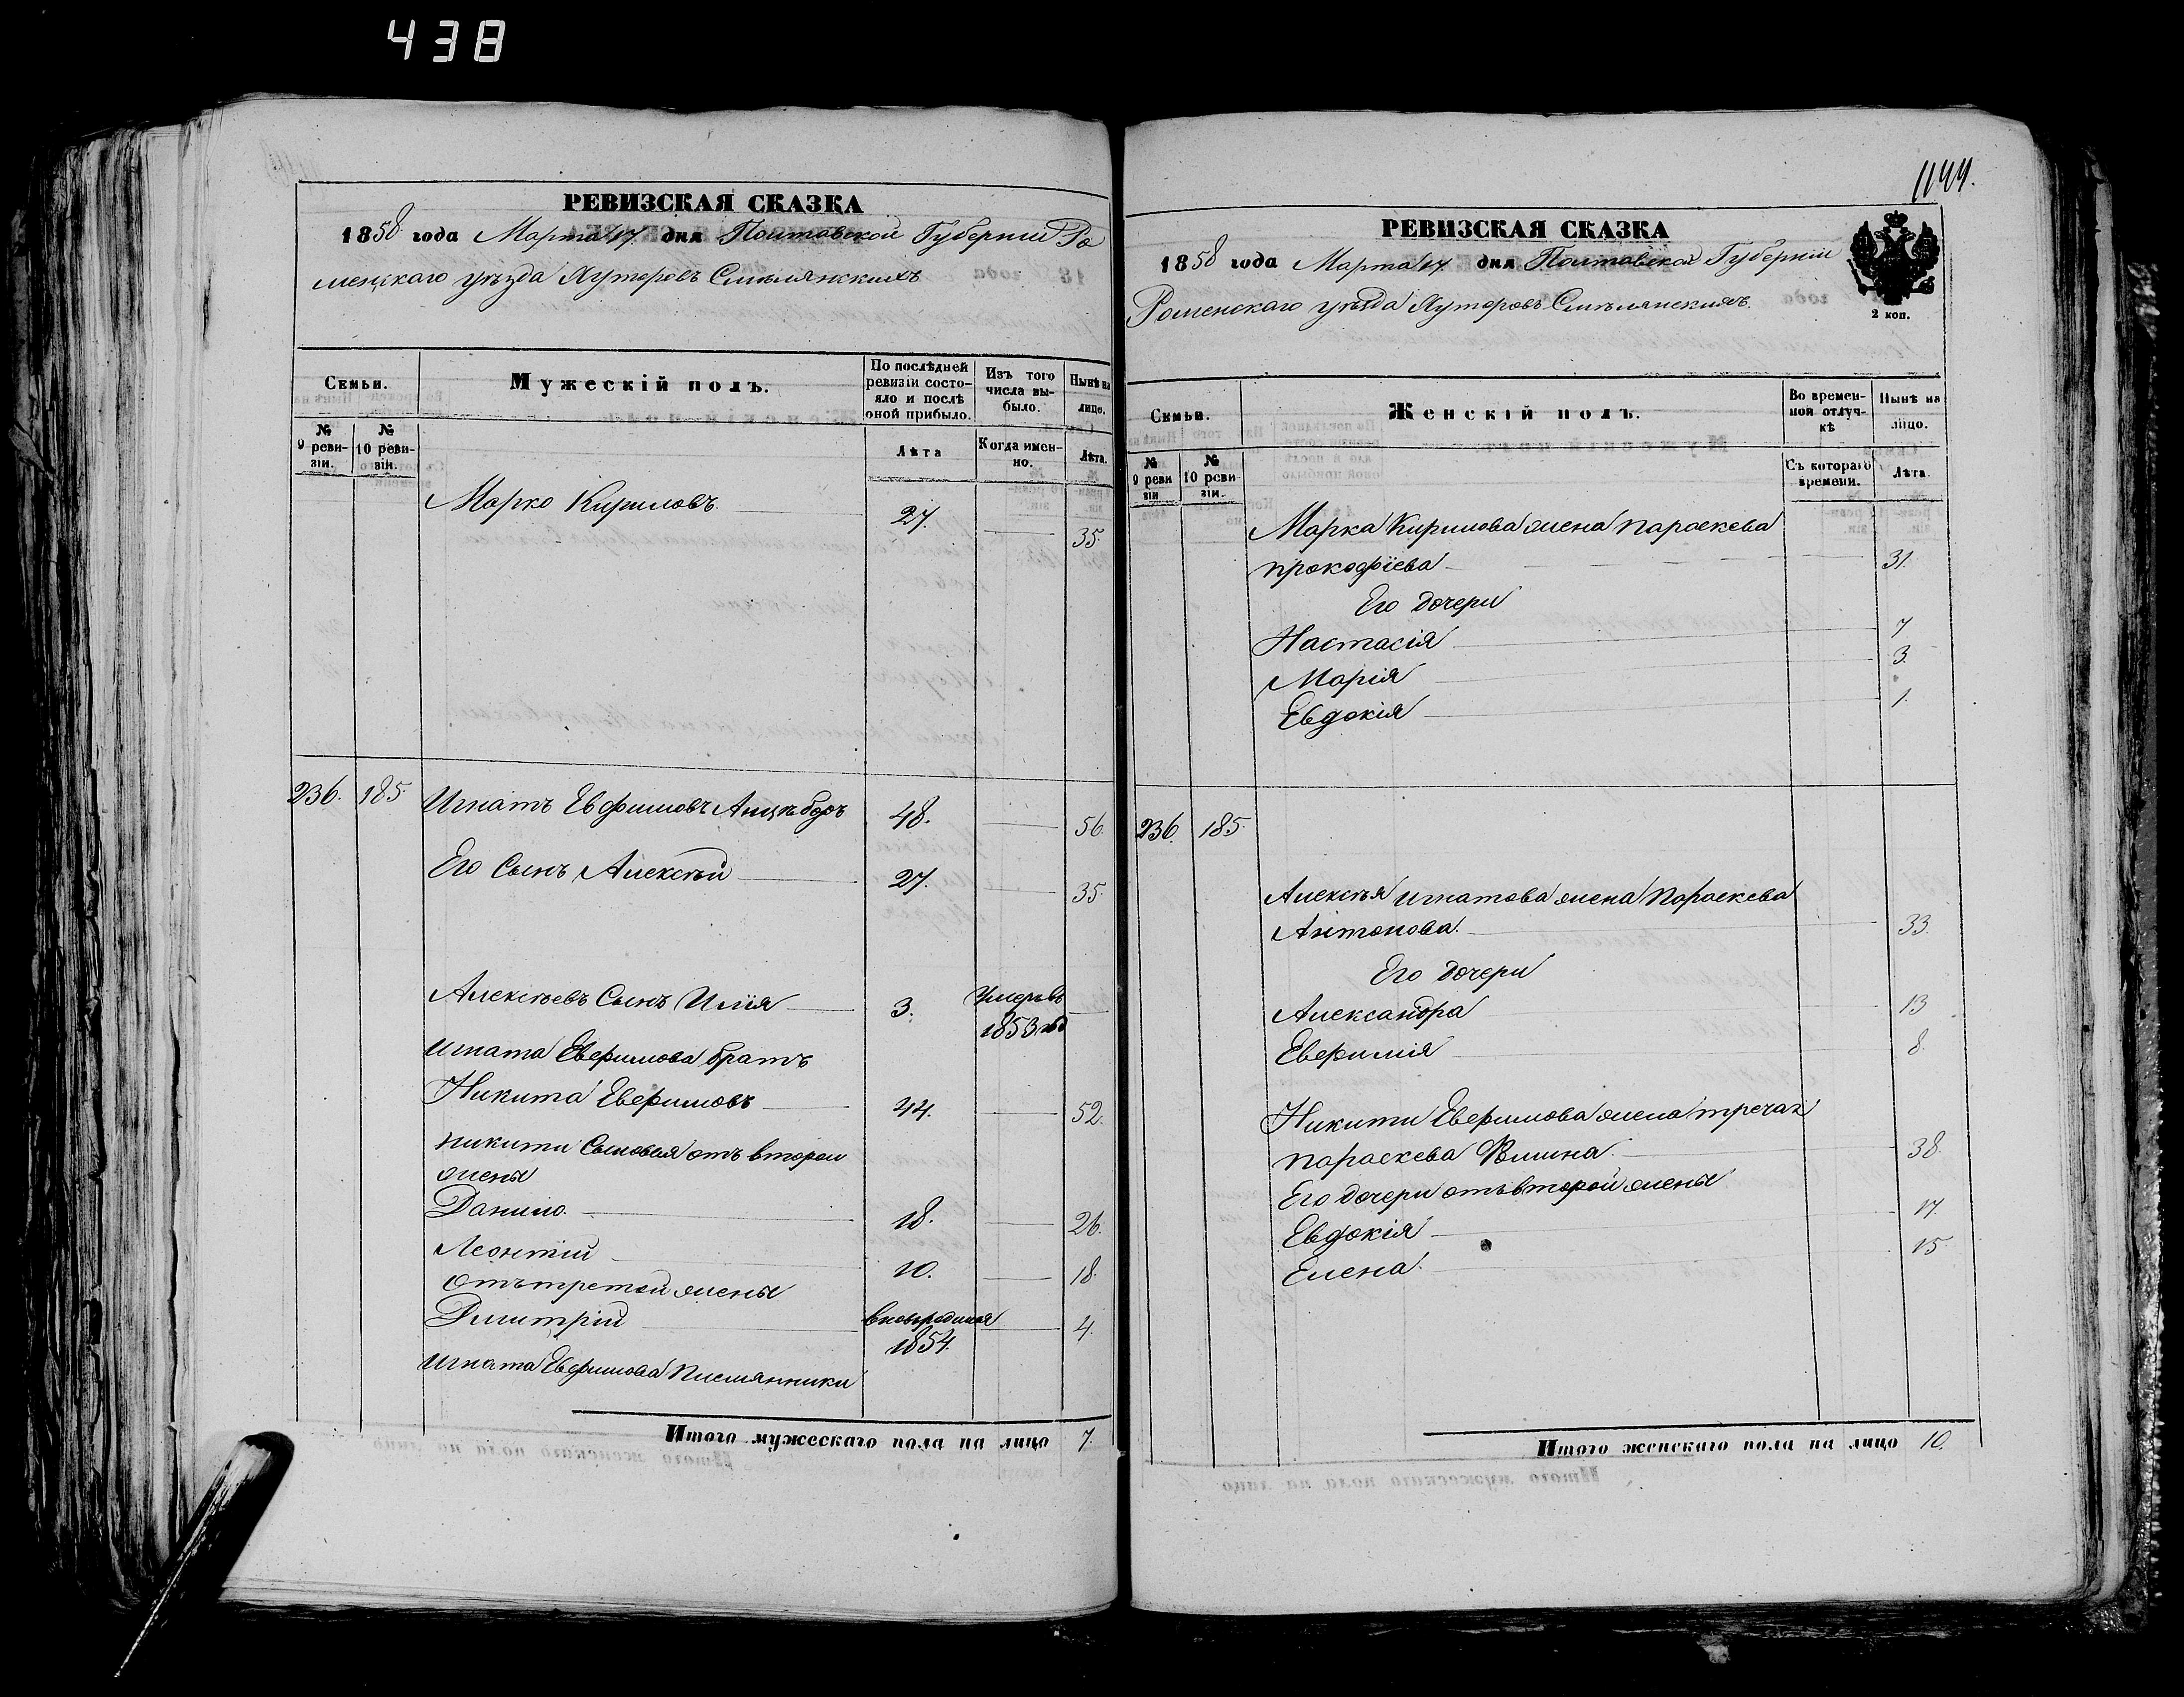 438
РЕВИЗСКАЯ СКАЗКА
1858 года Марта 17 дня Полтавской Губерніи Ро
менскаго уѣзда Хуторовъ Смѣлянскихъ
Семьи.
Мужескій полъ.
По послѣдней ревизіи состо-яло и послѣ оной прибыло.
Изъ того числа вы-было.
Нынѣ на лицо.
№ 9 реви-зіи.
№ 10 реви-зіи.
Лѣта
Когда имен-но.
Лѣта.
Марко Кириловъ 27. 35.
236. 185. Игнатъ Евфимовъ 48. 56.
Его Сынъ Алексѣй 27. 35.
Алексѣевъ Сынъ Илія 3. Умеръ въ
1853 год
Игната Евфимова братъ
Никита Евфимовъ 44. 52.
Никити Сыновья отъ второй
жены
Данило. 18. 26.
Леонтій 10. 18.
Отъ третой жены
Дмитрій 4.
1854.
Игната Евфимова Племянники
Итого мужескаго пола на лицо 7.
1144.
РЕВИЗСКАЯ СКАЗКА
1858 года Марта 17 дня Полтавской Губерніи
Роменскаго уѣзда Хуторовъ Смѣлянскихъ.
2 коп.
Семьи.
Женскій полъ.
Во времен-ной отлуч-кѣ
Нынѣ на лицо.
№ 9 реви зіи
№ 10 реви зіи.
Съ котораго времени.
Лѣта.
Марка Кирилова жена Параскева
Прокофіева 31.
Его дочери
Настасія 7
Марія 3.
Евдокія 1.
236. 185.
Алексѣя Игнатова жена Параскева
Антонова. 33.
Его дочери
Александра 13
Евфимія 8.
Никити Евфимова жена
Параскева 38.
Его дочери отъ второй жены
Евдокія 17.
Елена. 15.
Итого женскаго пола на лицо 10.